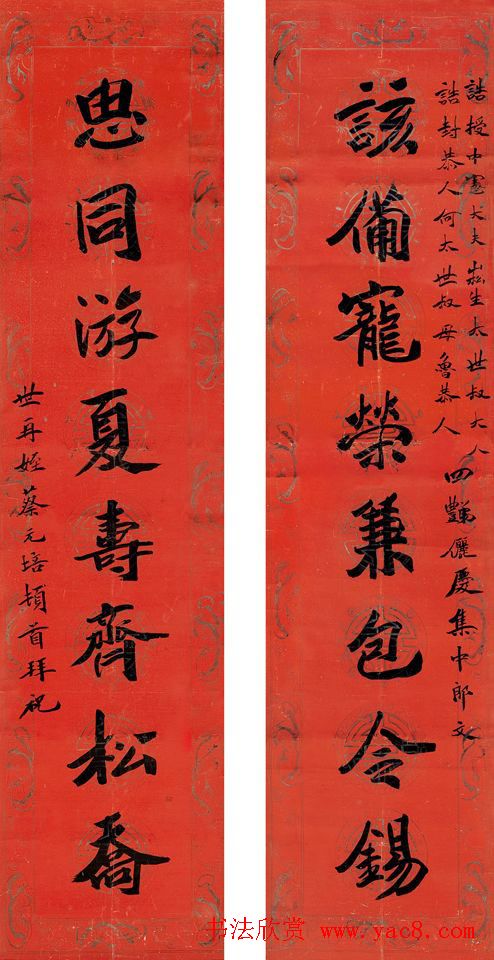 誥授中憲大夫崧生太世叔大人
誥封恭人何太世叔母魯恭人
四豑儷慶集中郎文
該備寵榮兼包令錫
思同游夏壽齊松喬
世再姪蔡元培頓首拜祝
书法欣赏 www.yac8.com